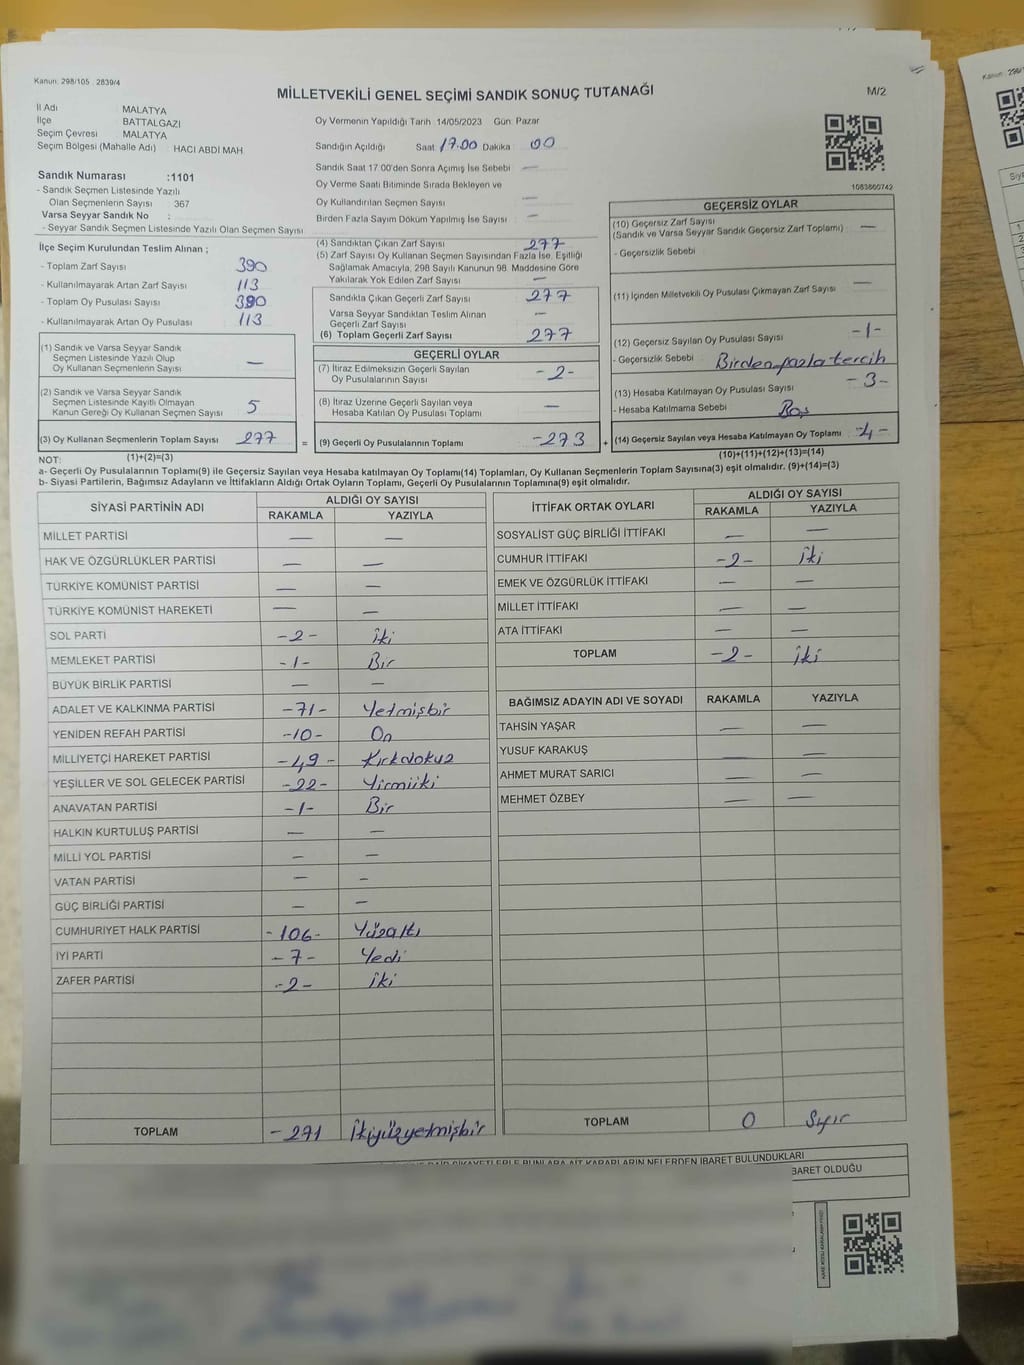 Kanun: 298/105 . 2839/4
MİLLETVEKİLİ GENEL SEÇİMİ SANDIK SONUÇ TUTANAĞI
M/2
İl Adı MALATYA
İlçe BATTALGAZİ
Seçim Çevresi MALATYA
Seçim Bölgesi (Mahalle Adı) HACI ABDİ MAH.
Sandık Numarası :1101
- Sandık Seçmen Listesinde Yazılı
Olan Seçmenlerin Sayısı : 367
Varsa Seyyar Sandık No :
- Seyyar Sandık Seçmen Listesinde Yazılı Olan Seçmen Sayısı :
Oy Vermenin Yapıldığı Tarih :14/05/2023 Gün: Pazar
Sandığın Açıldığı Saat 17.00 Dakika : 00
Sandık Saat 17.00'den Sonra Açımış İse Sebebi —
Oy Verme Saati Bitiminde Sırada Bekleyen ve
Oy Kullandırılan Seçmen Sayısı —
Birden Fazla Sayım Döküm Yapılmış İse Sayısı —
1083860742
İlçe Seçim Kurulundan Teslim Alınan ;
- Toplam Zarf Sayısı 390
- Kullanılmayarak Artan Zarf Sayısı 113
- Toplam Oy Pusulası Sayısı 390
- Kullanılmayarak Artan Oy Pusulası 113
(1) Sandık ve Varsa Seyyar Sandık
Seçmen Listesinde Yazılı Olup
Oy Kullanan Seçmenlerin Sayısı —
(2) Sandık ve Varsa Seyyar Sandık
Seçmen Listesinde Kayıtlı Olmayan
Kanun Gereği Oy Kullanan Seçmen Sayısı 5
(3) Oy Kullanan Seçmenlerin Toplam Sayısı 277 =
(4) Sandıktan Çıkan Zarf Sayısı 277
(5) Zarf Sayısı Oy Kullanan Seçmen Sayısından Fazla İse, Eşitliği
Sağlamak Amacıyla, 298 Sayılı Kanunun 98. Maddesine Göre
Yakılarak Yok Edilen Zarf Sayısı —
Sandıkta Çıkan Geçerli Zarf Sayısı 277
Varsa Seyyar Sandıktan Teslim Alınan
Geçerli Zarf Sayısı —
(6) Toplam Geçerli Zarf Sayısı 277
GEÇERLİ OYLAR
(7) İtiraz Edilmeksizin Geçerli Sayılan
Oy Pusulalarının Sayısı -2-
(8) İtiraz Üzerine Geçerli Sayılan veya
Hesaba Katılan Oy Pusulası Toplamı —
(9) Geçerli Oy Pusulalarının Toplamı -273 +
GEÇERSİZ OYLAR
(10) Geçersiz Zarf Sayısı
(Sandık ve Varsa Seyyar Sandık Geçersiz Zarf Toplamı) —
- Geçersizlik Sebebi
(11) İçinden Milletvekili Oy Pusulası Çıkmayan Zarf Sayısı —
(12) Geçersiz Sayılan Oy Pusulası Sayısı -1-
- Geçersizlik Sebebi Birden fazla tercih
(13) Hesaba Katılmayan Oy Pusulası Sayısı -3-
- Hesaba Katılmama Sebebi Boş
(14) Geçersiz Sayılan veya Hesaba Katılmayan Oy Toplamı -4-
NOT: (1)+(2)=(3) (10)+(11)+(12)+(13)=(14)
a- Geçerli Oy Pusulalarının Toplamı(9) ile Geçersiz Sayılan veya Hesaba katılmayan Oy Toplamı(14) Toplamları, Oy Kullanan Seçmenlerin Toplam Sayısına(3) eşit olmalıdır. (9)+(14)=(3)
b- Siyasi Partilerin, Bağımsız Adayların ve İttifakların Aldığı Ortak Oyların Toplamı, Geçerli Oy Pusulalarının Toplamına(9) eşit olmalıdır.
SİYASİ PARTİNİN ADI ALDIĞI OY SAYISI
RAKAMLA YAZIYLA
MİLLET PARTİSİ — —
HAK VE ÖZGÜRLÜKLER PARTİSİ — —
TÜRKİYE KOMÜNİST PARTİSİ — —
TÜRKİYE KOMÜNİST HAREKETİ — —
SOL PARTİ -2- iki
MEMLEKET PARTİSİ -1- Bir
BÜYÜK BİRLİK PARTİSİ — —
ADALET VE KALKINMA PARTİSİ -71- Yetmişbir
YENİDEN REFAH PARTİSİ -10- On
MİLLİYETÇİ HAREKET PARTİSİ -49- Kırkdokuz
YEŞİLLER VE SOL GELECEK PARTİSİ -22- Yirmiiki
ANAVATAN PARTİSİ -1- Bir
HALKIN KURTULUŞ PARTİSİ — —
MİLLİ YOL PARTİSİ — —
VATAN PARTİSİ — —
GÜÇ BİRLİĞİ PARTİSİ — —
CUMHURİYET HALK PARTİSİ -106- Yüzaltı
İYİ PARTİ -7- Yedi
ZAFER PARTİSİ -2- iki
TOPLAM -271 İkiyüzyetmişbir
İTTİFAK ORTAK OYLARI ALDIĞI OY SAYISI
RAKAMLA YAZIYLA
SOSYALİST GÜÇ BİRLİĞİ İTTİFAKI — —
CUMHUR İTTİFAKI -2- İki
EMEK VE ÖZGÜRLÜK İTTİFAKI — —
MİLLET İTTİFAKI — —
ATA İTTİFAKI — —
TOPLAM -2- iki
BAĞIMSIZ ADAYIN ADI VE SOYADI RAKAMLA YAZIYLA
TAHSİN YAŞAR — —
YUSUF KARAKUŞ — —
AHMET MURAT SARICI — —
MEHMET ÖZBEY — —
TOPLAM 0 Sıfır
KARARLARIN NELERDEN İBARET BULUNDUKLARI
BARET OLDUĞU